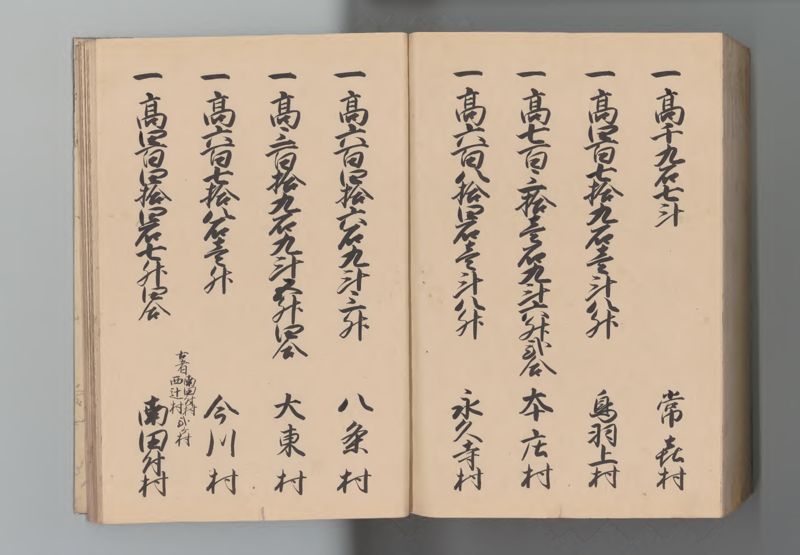 一高千九石七斗 常喜村
一高四百七拾九石壱斗八升 鳥羽上村
一高七百三拾壱石九斗六升弐合 本庄村
一高六百八拾四石壱斗八升 永久寺村
一高六百四拾六石九斗三升 八条村
一高三百拾九石九斗五升四合 大東村
一高六百七拾八石壱升 今川村
古者南田付村
西辻村弐ヶ村
一高四百四拾四石七升四合 南田付村